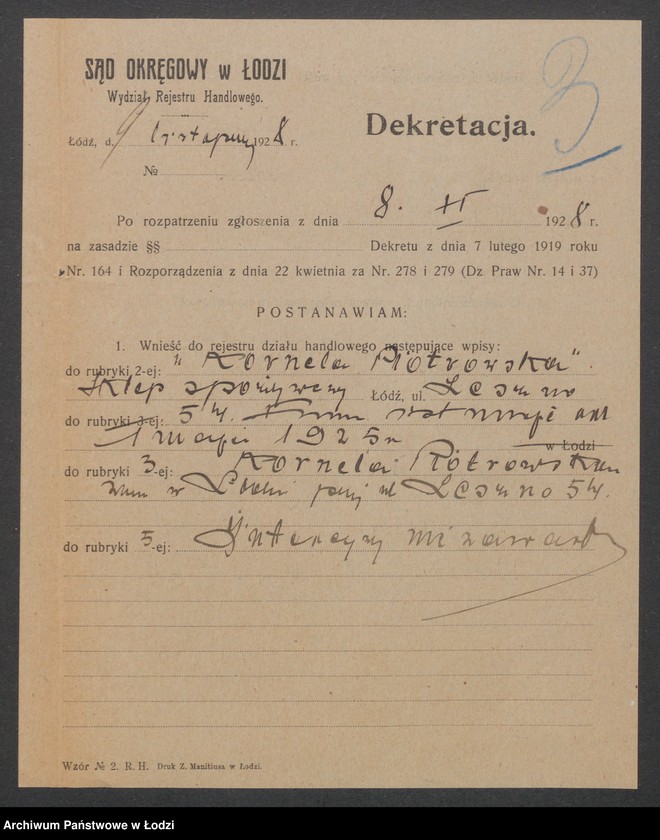 SĄD OKRĘGOWY w ŁODZI
Wydział Rejestru Handlowego.
3
Łódź, d. 9 listopada 1928 r.
№
Dekretacja.
Po rozpatrzeniu zgłoszenia z dnia 8. XI 1928 r.
na zasadzie §§ Dekretu z dnia 7 lutego 1919 roku
Nr. 164 i Rozporządzenia z dnia 22 kwietnia za Nr. 278 i 279 (Dz Praw Nr. 14 i 37)
POSTANAWIAM:
1. Wnieść do rejestru działu handlowego następujące wpisy:
do rubryki 2-ej: "Kornela Piotrowska".
Sklep spożywczy Łódź, ul. Leszno
do rubryki 3-ej: 54. Firma istnieje od
1 maja 1925 r
w Łodzi
do rubryki 3-ej: Kornela Piotrowska
zam w Łodzi przy ul Leszno 54.
do rubryki 5-ej: Intercyzy nie zawarła
Wzór № 2. R. H. Druk Z. Manitiusa w Łodzi.
Archiwum Państwowe w Łodzi